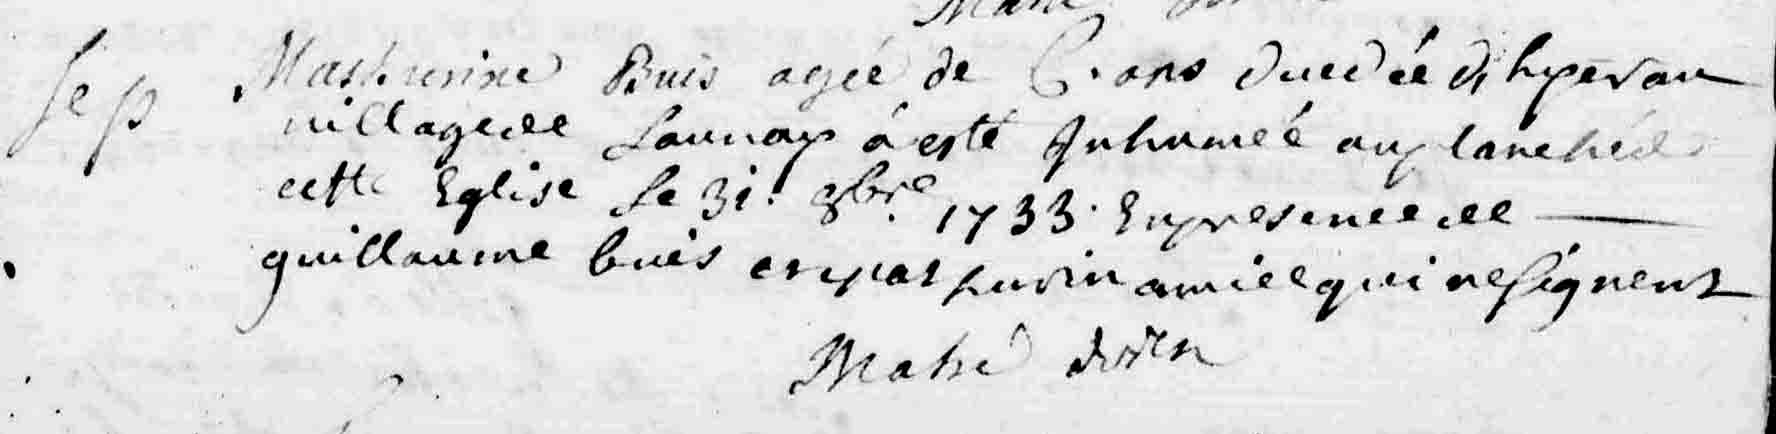 Sep Mathurine Buis agée de 6. ans decedée d'hyer au
village de Launay á esté Inhumeé au planché de
cette Eglise Le 31. 8bre. 1733. En presence de
guillaume buis et mathurin amice qui ne signent
Mahé